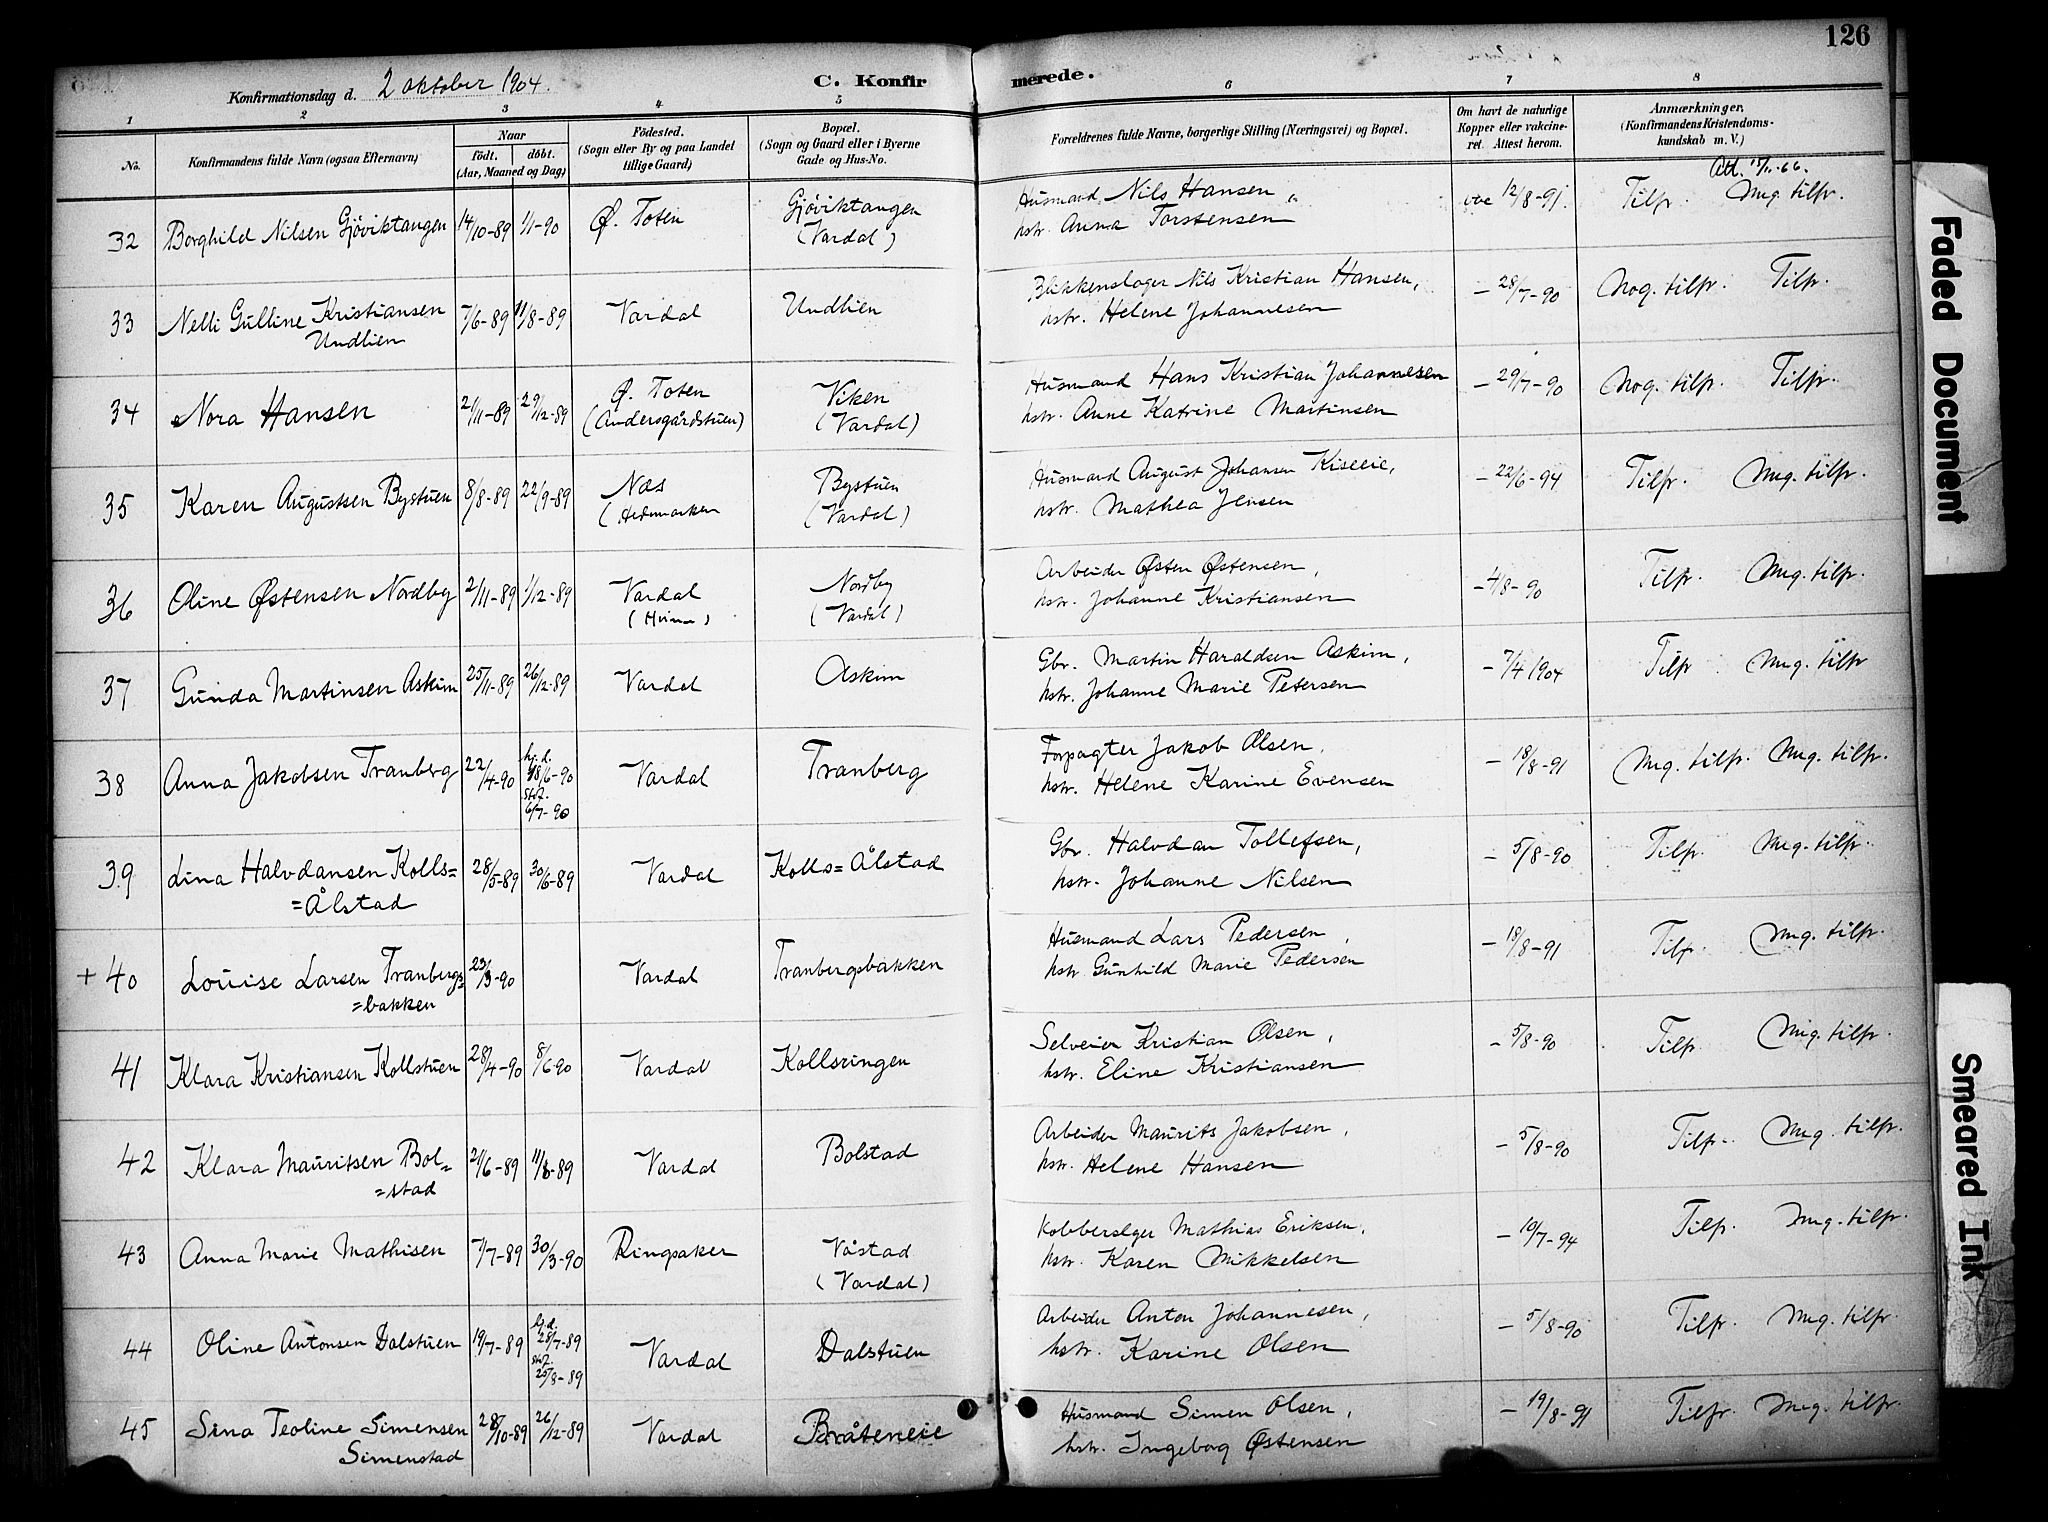 126
Konfirmationsdag d. 2 oktober 1904.
C. Konfirmerede.
1 2 3 4 5 6 7 8
No.
Konfirmandens fulde Navn (ogsaa Efternavn)
Naar
födt. döbt.
(Aar, Maaned og Dag)
Födested.
(Sogn eller By og paa Landet
tillige Gaard)
Bopæl.
(Sogn og Gaard eller i Byerne
Gade og Hus-No.
Forældrenes fulde Navne, borgerlige Stilling (Næringsvei) og Bopæl.
Om havt de naturlige
Kopper eller vakcine-
ret. Attest herom.
Anmærkninger.
(Konfirmandens Kristendoms-
kundskab m. V.)
32 Borghild Nilsen Gjöviktangen 14/10-89 1/1-90 Ø. Toten Gjöviktangen
(Vardal)
Husmand Nils Hansen,
hstr. Anna Torstensen
vac 12/8-91. Tilfr. Mg. tilfr.
33 Nelli Gulline Kristiansen
Undlien
7/6-89 11/8-89 Vardal Undlien
Blikkenslager Nils Kristian Hansen,
hstr. Helene Johannesen
- 28/7-90 Nog. tilfr. Tilfr.
34 Nora Hansen 21/11-89 29/12-89 Ø. Toten
(Andersgårdstuen)
Viken
(Vardal)
Husmand Hans Kristian Johannesen
hstr. Anne Katrine Martinsen
- 29/7-90 Nog. tilfr. Tilfr.
35 Karen Augustsen Bystuen 8/8-89 22/9-89 Næs
(Hedemarken
Bystuen
(Vardal)
Husmand August Johansen Kiseeie,
hstr. Mathea Jensen
- 22/6-94 Tilfr. Mg. tilfr.
36 Oline Østensen Nordby 2/11-89 1/12-89 Vardal
Nordby
(Vardal)
Arbeider Østen Østensen,
hstr. Johanne Kristiansen
- 4/8-90 Tilfr. Mg. tilfr.
37 Gunda Martinsen Askim 25/11-89 26/12-89 Vardal Askim
Gbr. Martin Haraldsen Askim,
hstr. Johanne Marie Petersen
- 7/4 1904 Tilfr. Mg. tilfr
38 Anna Jakobsen Tranberg 22/4-90 hj. d.
18/6-90
stf.
6/7-90
Vardal Tranberg
Forpagter Jakob Olsen,
hstr. Helene Karine Evensen
- 18/8-91 Mg. tilfr. Mg. tilfr.
39 Lina Halvdansen Kolls=
=Ålstad
28/5-89 30/6-89 Vardal Kolls=Ålstad
Gbr. Halvdan Tollefsen,
hstr. Johanne Nilsen
- 5/8-90 Tilfr. Mg. tilfr.
+ 40 Louise Larsen Tranbergs=
=bakken
23/3-90 Vardal Tranbergsbakken
Husmand Lars Pedersen,
hstr Gunhild Marie Pedersen
- 18/8-91 Tilfr. Mg. tilfr.
41 Klara Kristiansen Kollstuen 28/4-90 8/6-90 Vardal Kollsringen
Selveier Kristian Olsen,
hstr. Eline Kristiansen
- 5/8-90 Tilfr. Mg. tilfr.
42 Klara Mauritsen Bol=
=stad
21/6-89 11/8-89 Vardal Bolstad
Arbeider Maurits Jakobsen,
hstr. Helene Hansen
- 5/8-90 Tilfr. Mg. tilfr.
43 Anna Marie Mathisen 7/7-89 30/3-90 Ringsaker Våstad
(Vardal)
Kobberslger Mathias Eriksen,
hstr. Karen Mikkelsen
- 19/7-94 Tilfr. Mg. tilfr.
44 Oline Antonsen Dalstuen 19/7-89 hj. d.
28/7-89
stf.
25/8-89
Vardal Dalstuen
Arbeider Anton Johannesen,
hstr. Karine Olsen
- 5/8-90 Tilfr. Mg. tilfr.
45 Sina Teoline Simensen
Simenstad
28/10-89 26/12-89 Vardal Bråteneie
Husmand Simen Olsen,
hstr. Ingeborg Østensen
- 19/8-91 Tilfr. Mg. tilfr.
Faded Document
Smeared Ink